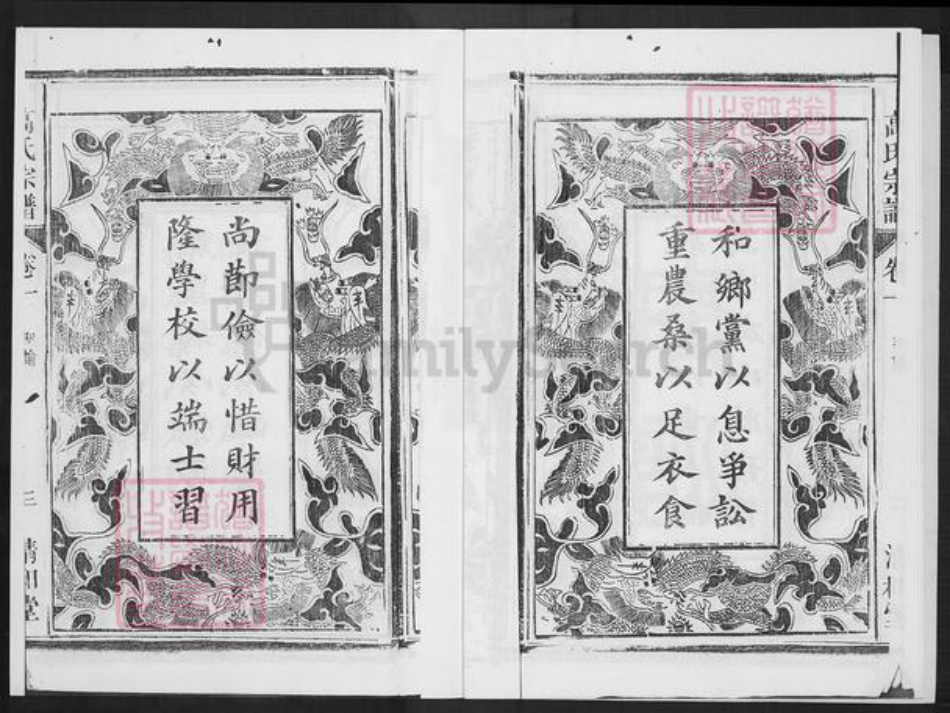 和鄉黨以息爭訟
重農桑以足衣食
尚節儉以惜財用
隆學校以端士習
高氏宗譜
卷一
高氏宗譜
卷一
三
清和堂
FamilySearch